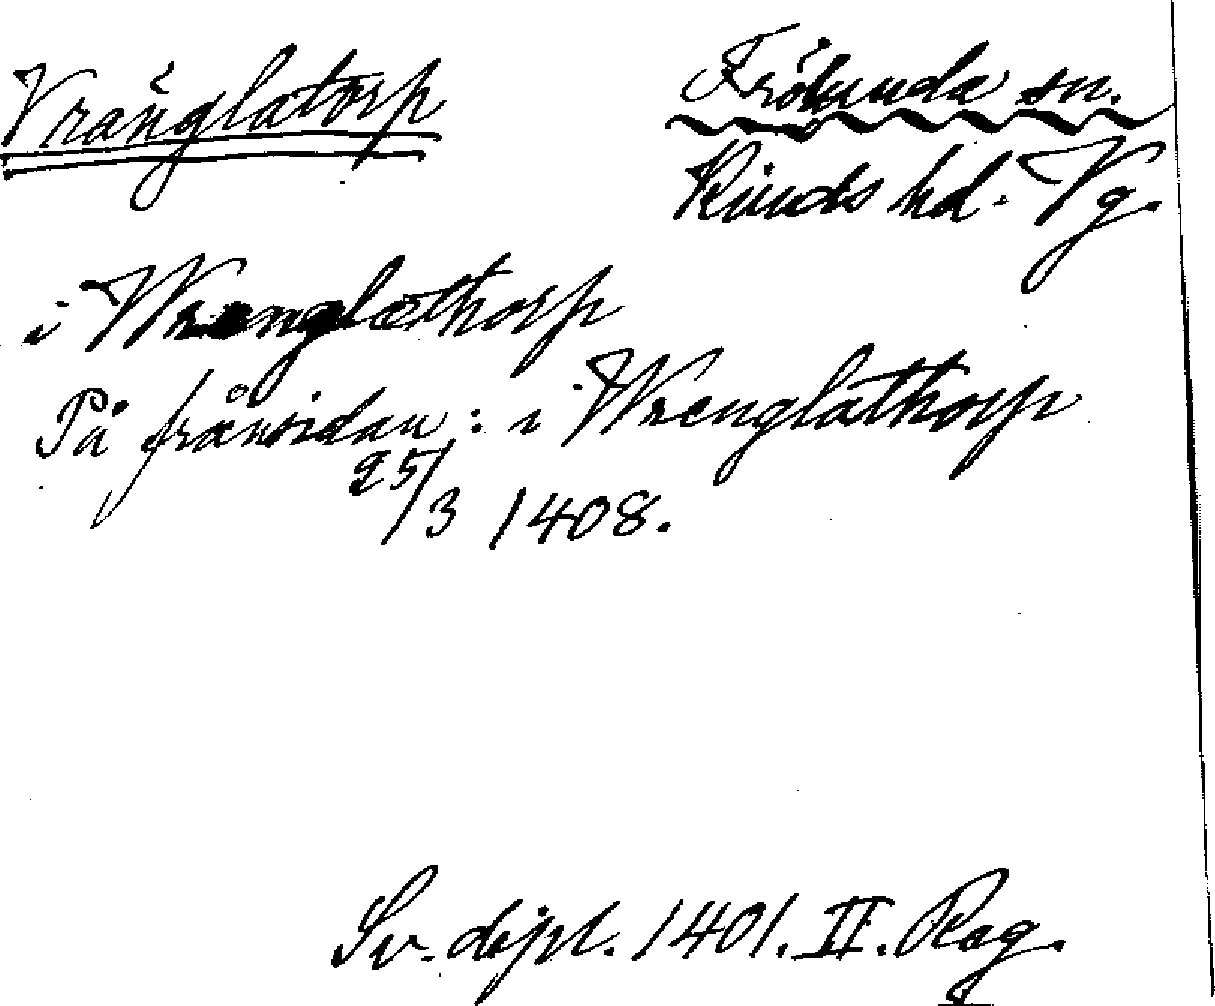 Vränglatorp
Frölunda sn.
Kinds hd. Vg.
i Wrænglæthorp
På frånsidan: i Wrenglathorp
25/3 1408.
Sv. dipl. 1401. II. Reg.